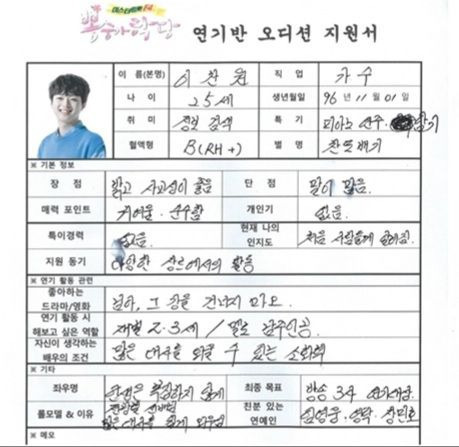 미스터트롯 F4
뽕숭아학당 연기반 오디션 지원서
이 름(본명) 이찬원 직 업 가수
나 이 25세 생년월일 96년 11월 01일
취 미 정보 검색 특 기 피아노 연주
혈액형 B(RH+) 별 명 찬또배기
※ 기본 정보
장 점 밝고 사교성이 좋음 단 점 말이 많음.
매력 포인트 귀여움·순수함 개인기 없음.
특이경력 없음. 현재 나의 인지도
지원 동기 다양한 장르에서의 활동
※ 연기 활동 관련
좋아하는 드라마/영화 님아, 그 강을 건너지 마오.
연기 활동 시 해보고 싶은 역할 재벌 2·3세 / 멜로 남주인공
자신이 생각하는 배우의 조건 많은 대사를 외울 수 있는 소화력
※ 기타
좌우명 최종 목표 방송 3사 연예대상
롤모델 & 이유 친분 있는 연예인 임영웅·영탁·장민호
※ 메모